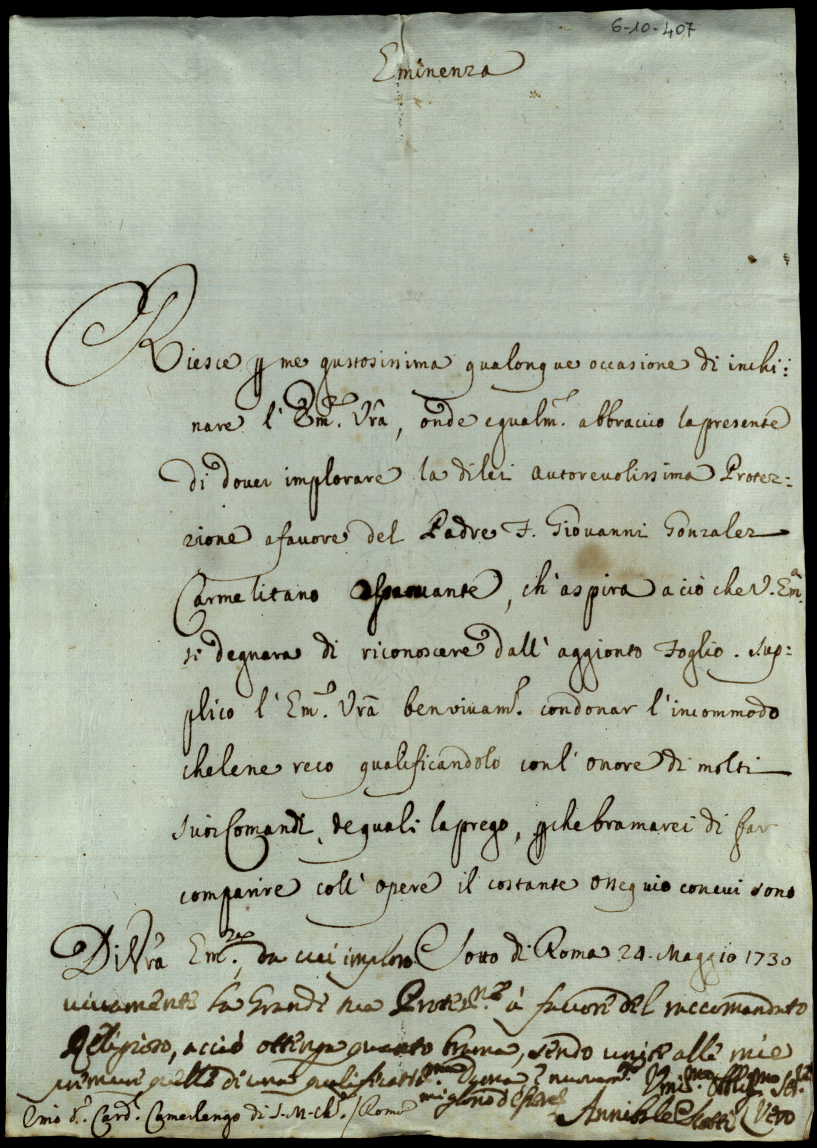 6-10-407
Eminenza
Riesce p me gustosissima qualongue occasione di inchi:
nare l' Emza. Vrã, onde egualmte. abbraccio la presente
di dover implorare la dilei autorevolissima Protez:
zione a favore del Padre F. Giovanni Gonzalez
Carmelitano, ch' aspira a ciò che V. Ema.
si degnara di riconoscere dall' aggionto Foglio. Sup:
plico l' Emza. Vrã benvivamte. condonar l' incommodo
chelene reco qualificandolo conl' onore di molti
suoi Comandi, de quali la prego, pche bramarei di far
comparire coll' opere il costante ossequio concui sono
Di Vrã Emza., da cui imploro Sotto di Roma 24. Maggio 1730
vivamente la grande sua Protezne. à favore del raccomandato
Religioso, acciò ottenga quanto brama, sendo unite alle mie
premure quelle di una
Emo Sr. Cardl. Camerlengo di S. M. Ch. / Roma
Annibale Scotti